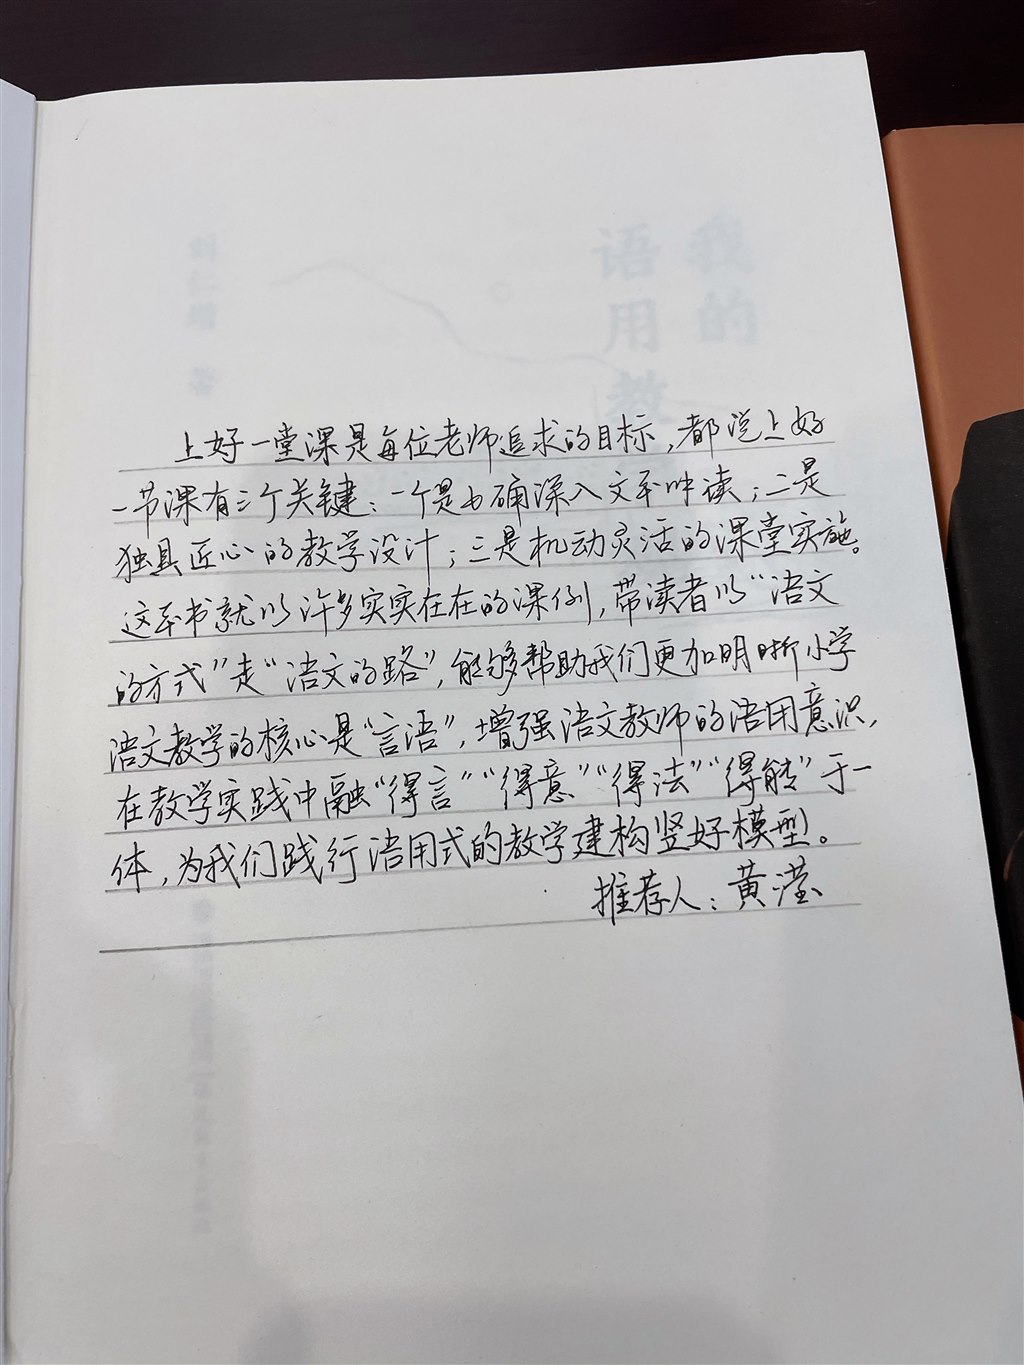 我的
语用教
刘仁增 著
上好一堂课是每位老师追求的目标，都说上好
一节课有三个关键：一个是正确深入文本解读；二是
独具匠心的教学设计；三是机动灵活的课堂实施。
这本书就以许多实实在在的课例，带读者以“语文
的方式”走“语文的路”，能够帮助我们更加明晰小学
语文教学的核心是“言语”，增强语文教师的语用意识，
在教学实践中融“得言”“得意”“得法”“得能”于一
体，为我们践行语用式的教学建构竖好模型。
推荐人：黄滢